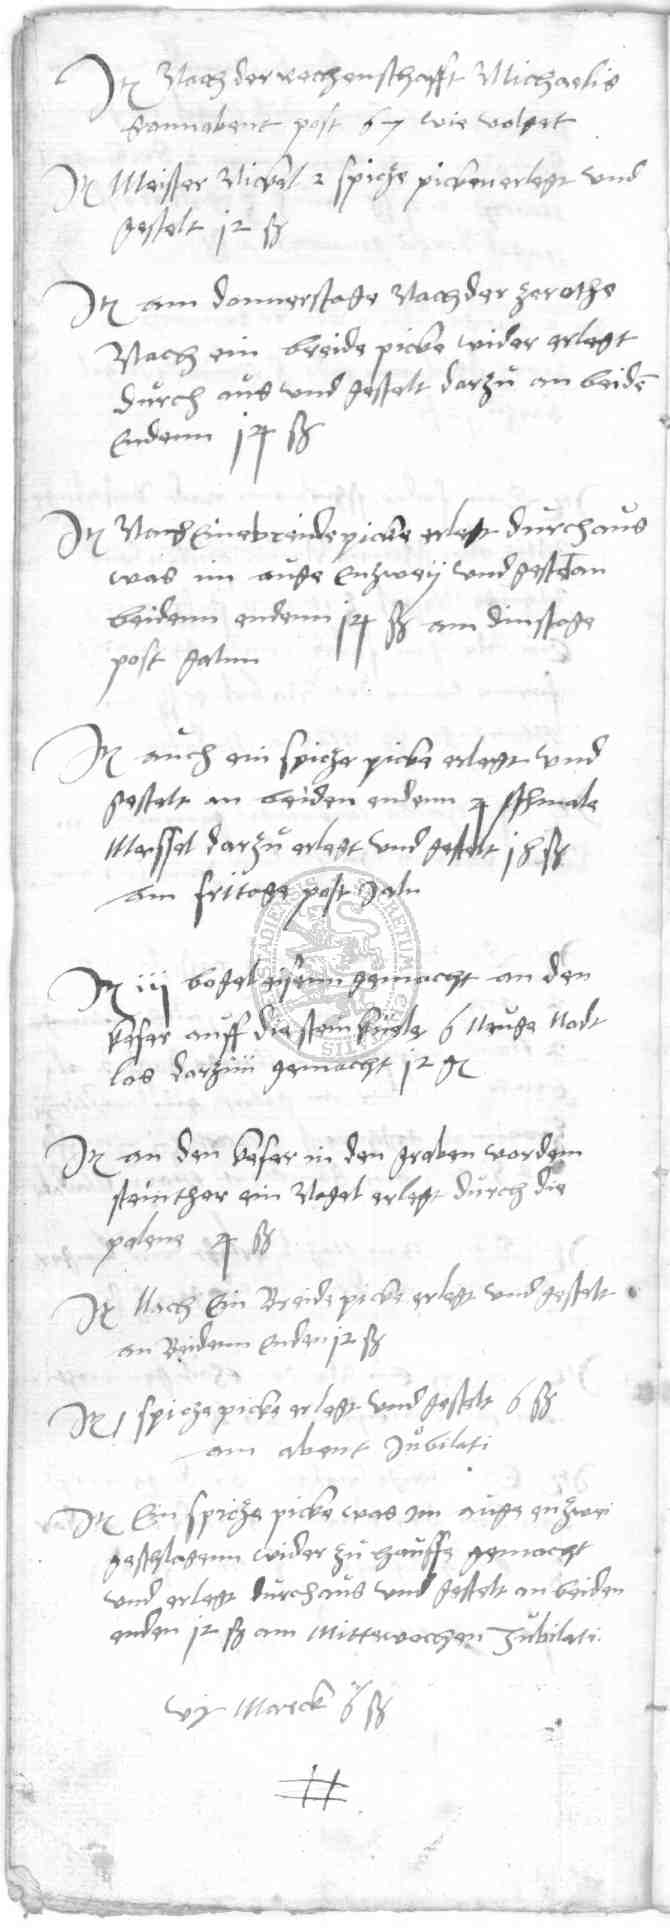 Itt Nach der rechenschafft Michaelis
Sonnabent post 67 wie volget
Itt Meister Nickel 2 spicze picken erlegt und
gestelt 12 ß
Itt am donnerstage Nach der
Nach ein breide picke wider erlegt
durch aus und gestelt darzu an beiden
Endenn 14 ß
Itt Nach Eine breide picke erlegt durch aus
was im auge Enzweij und gestelt an
beidenn endenn 14 ß am dinstage
post
Itt auch ein spicze picke erlegt und
gestelt an beiden endenn 2 schmale
darzu erlegt und gestelt 18 ß
am fritage post
Itt iij bogel gemacht an den
kefer auff die stein 6 Neuge Nodt
los darzu gemacht 12 g
Itt an den kefer in den graben vor dem
steinther ein Nagel erlegt durch die
4 ß
Itt Nach Ein Breide picke erlegt und gestelt
an Beidenn Enden 12 ß
Itt 1 spicze picke erlegt und gestelt 6 ß
am abent Jubilati
Itt Ein spicze picke was im auge enzwei
geschlagenn wider zu hauffe gemacht
und erlegt durch aus und gestelt an beiden
enden 12 ß am Mittewochen Jubilati
Marck 6 ß